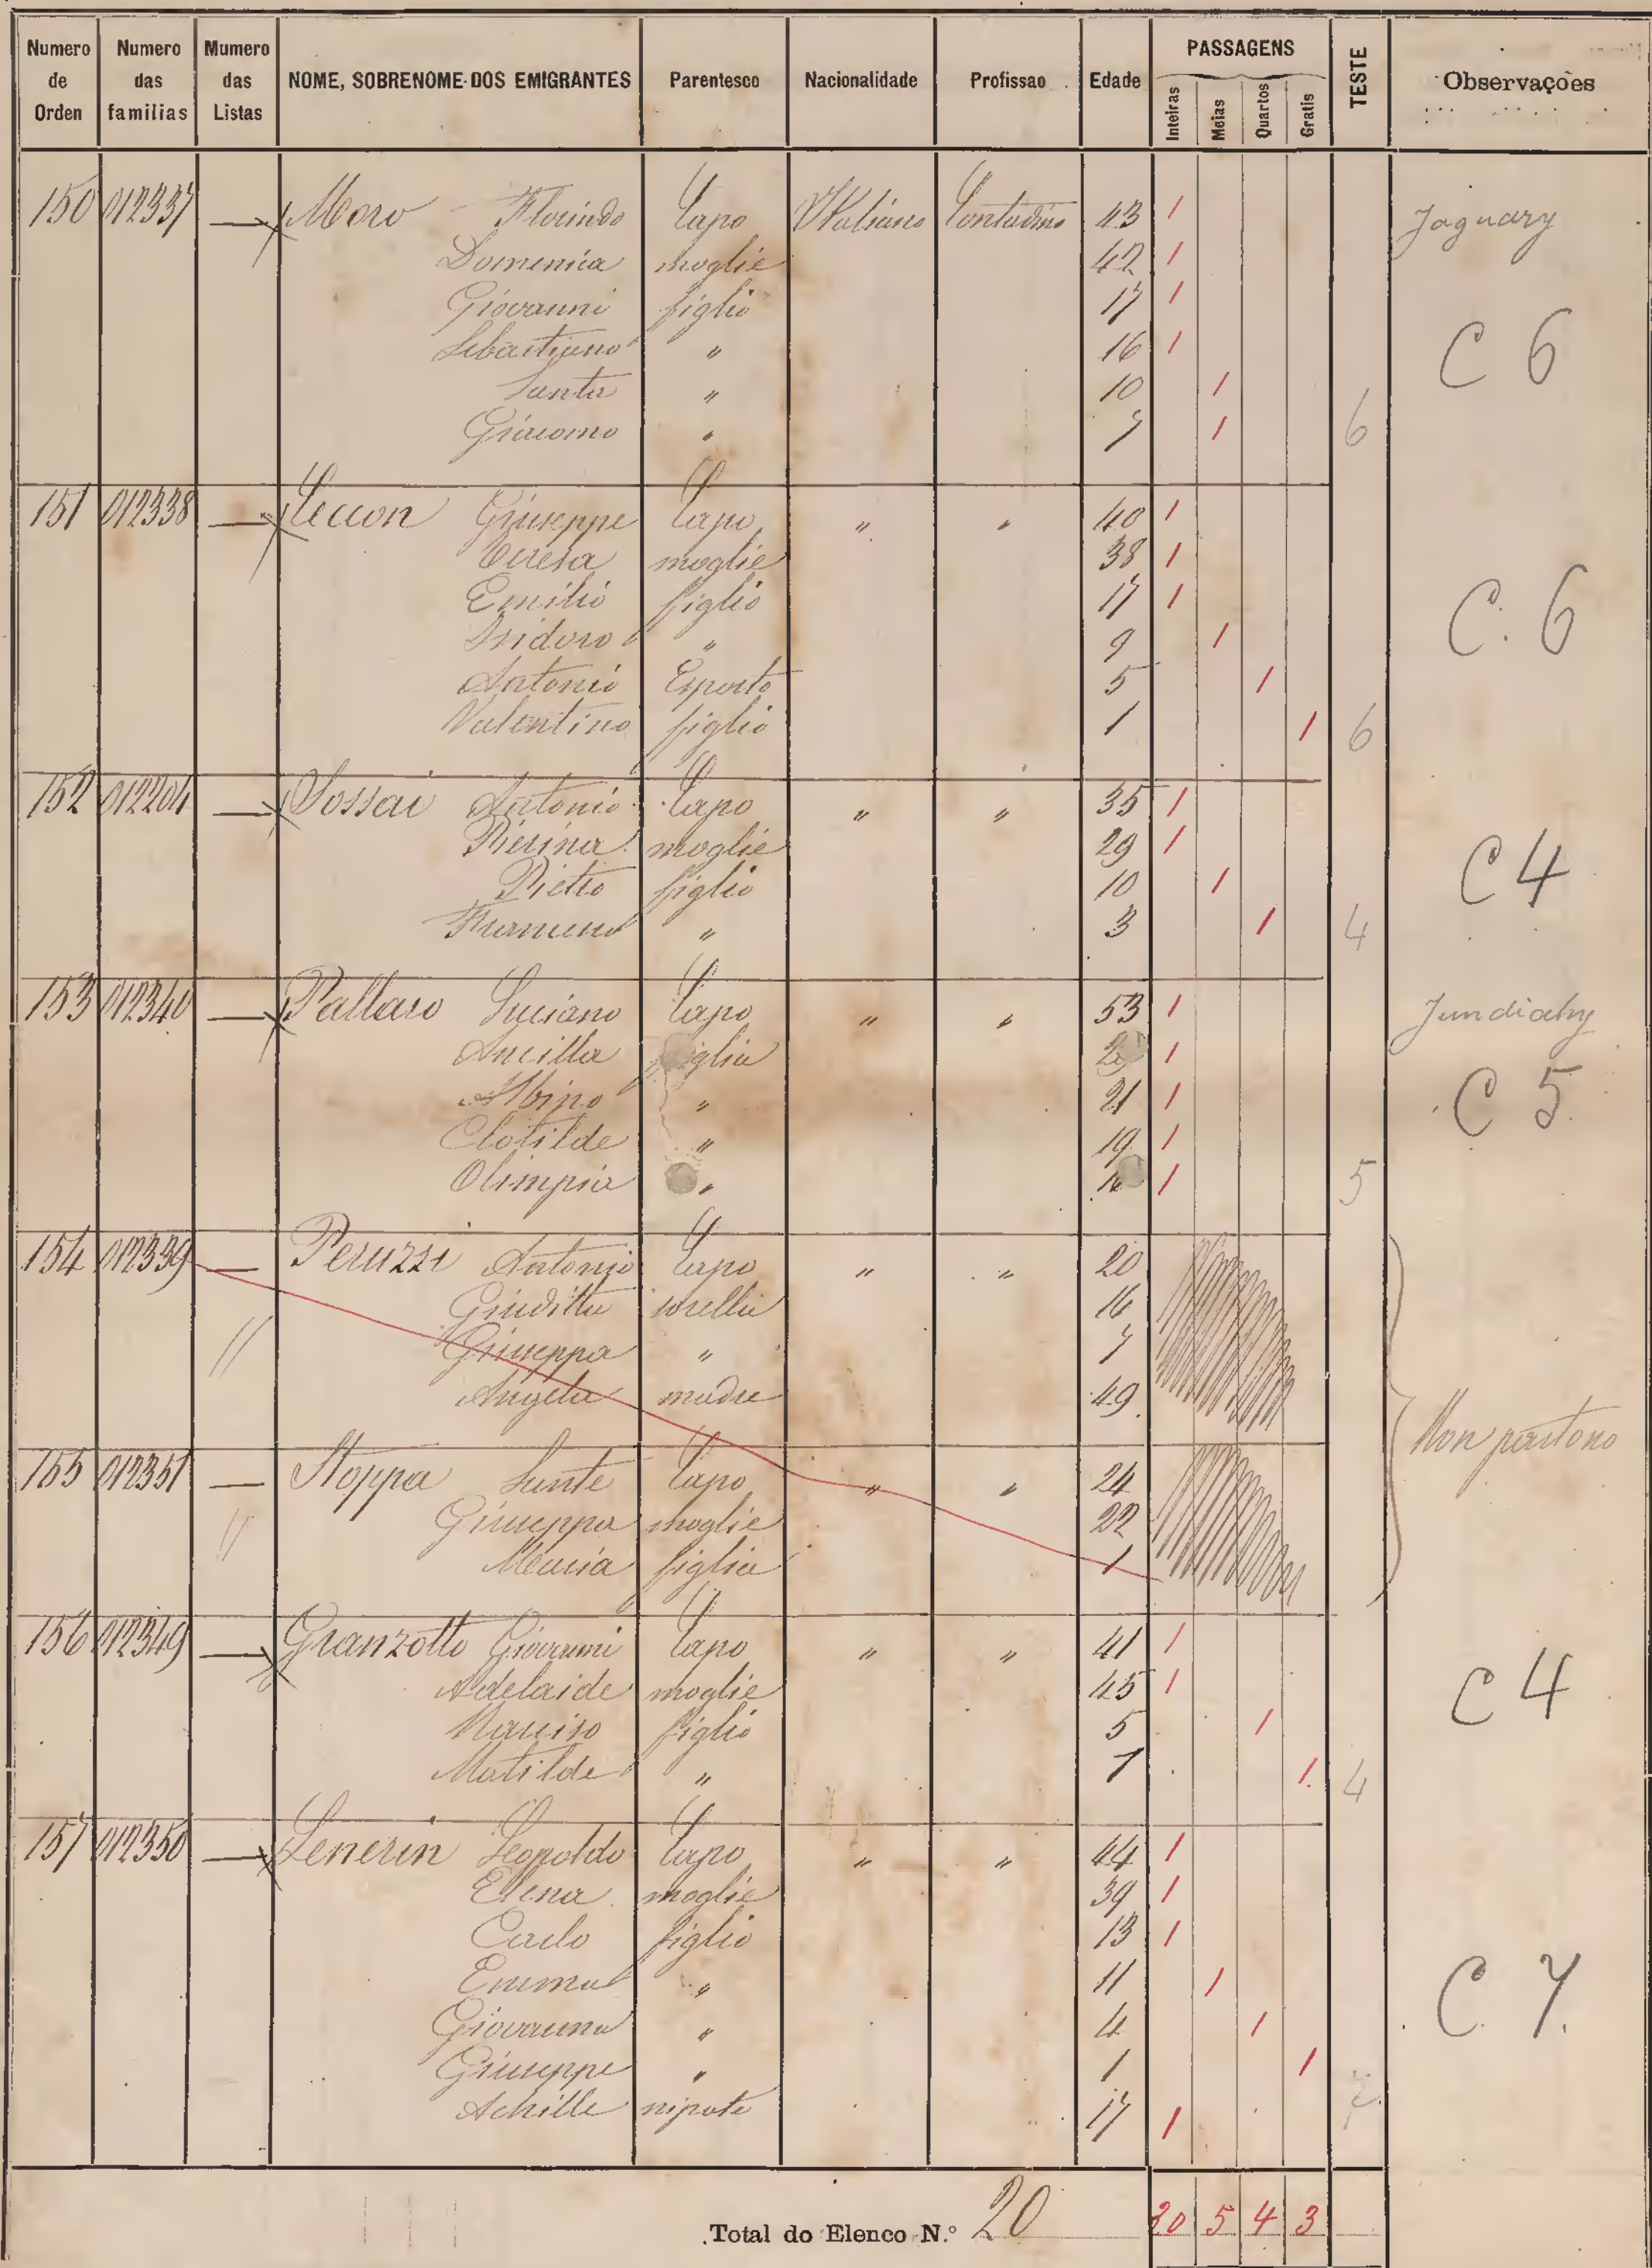 Numero de Orden | Numero das familias | Mumero das Listas | NOME, SOBRENOME DOS EMIGRANTES | Parentesco | Nacionalidade | Profissao | Edade | PASSAGENS | TESTE | Observações
Inteiras | Meias | Quartos | Gratis
150 | 012337 | — | Moro Florindo | Capo | Italiano | Contadino | 43 | 1 | Jaguary
Domenica | moglie | 42 | 1
Giovanni | figlio | 17 | 1
Sebastiano | " | 16 | 1 | C 6
Santa | " | 10 | 1
Giacomo | " | 7 | 1 | 6
151 | 012338 | — | Ceccon Giuseppe | Capo | " | " | 40 | 1
Teresa | moglie | 38 | 1
Emilio | figlio | 17 | 1 | C. 6
Isidoro | " | 9 | 1
Antonio | Esposto | 5 | 1
Valentino | figlio | 1 | 1 | 6
152 | 012204 | — | Sossai Antonio | Capo | " | " | 35 | 1
Pierina | moglie | 29 | 1
Pietro | figlio | 10 | 1 | C 4
" | 3 | 1 | 4
153 | 012340 | — | Pallaro Luciano | Capo | " | " | 53 | 1 | Jundiahy
Ancilla | figlia | 1
Albino | " | 21 | 1 | C 5
Clotilde | " | 19 | 1
Olimpia | " | 1 | 5
154 | 012339 | — | Peruzzi Antonio | Capo | " | " | 20
Giuditta | sorella | 16
Giuseppa | " | 7
Angela | madre | 49
Non partono
155 | 012351 | — | Stoppa Sante | Capo | " | " | 24
Giuseppa | moglie | 22
Maria | figlia | 1
156 | 012349 | — | Granzotto Giovanni | Capo | " | " | 41 | 1
Adelaide | moglie | 45 | 1 | C 4
Narciso | figlio | 5 | 1
Matilde | " | 1 | 1 | 4
157 | 012350 | — | Zenerin Leopoldo | Capo | " | " | 44 | 1
Elena | moglie | 39 | 1
Carlo | figlio | 13 | 1
Emma | " | 11 | 1 | C. 7.
Giovanna | " | 4 | 1
Giuseppe | " | 1 | 1
Achille | nipote | 17 | 1 | 7
Total do Elenco N.º 20 | 20 | 5 | 4 | 3